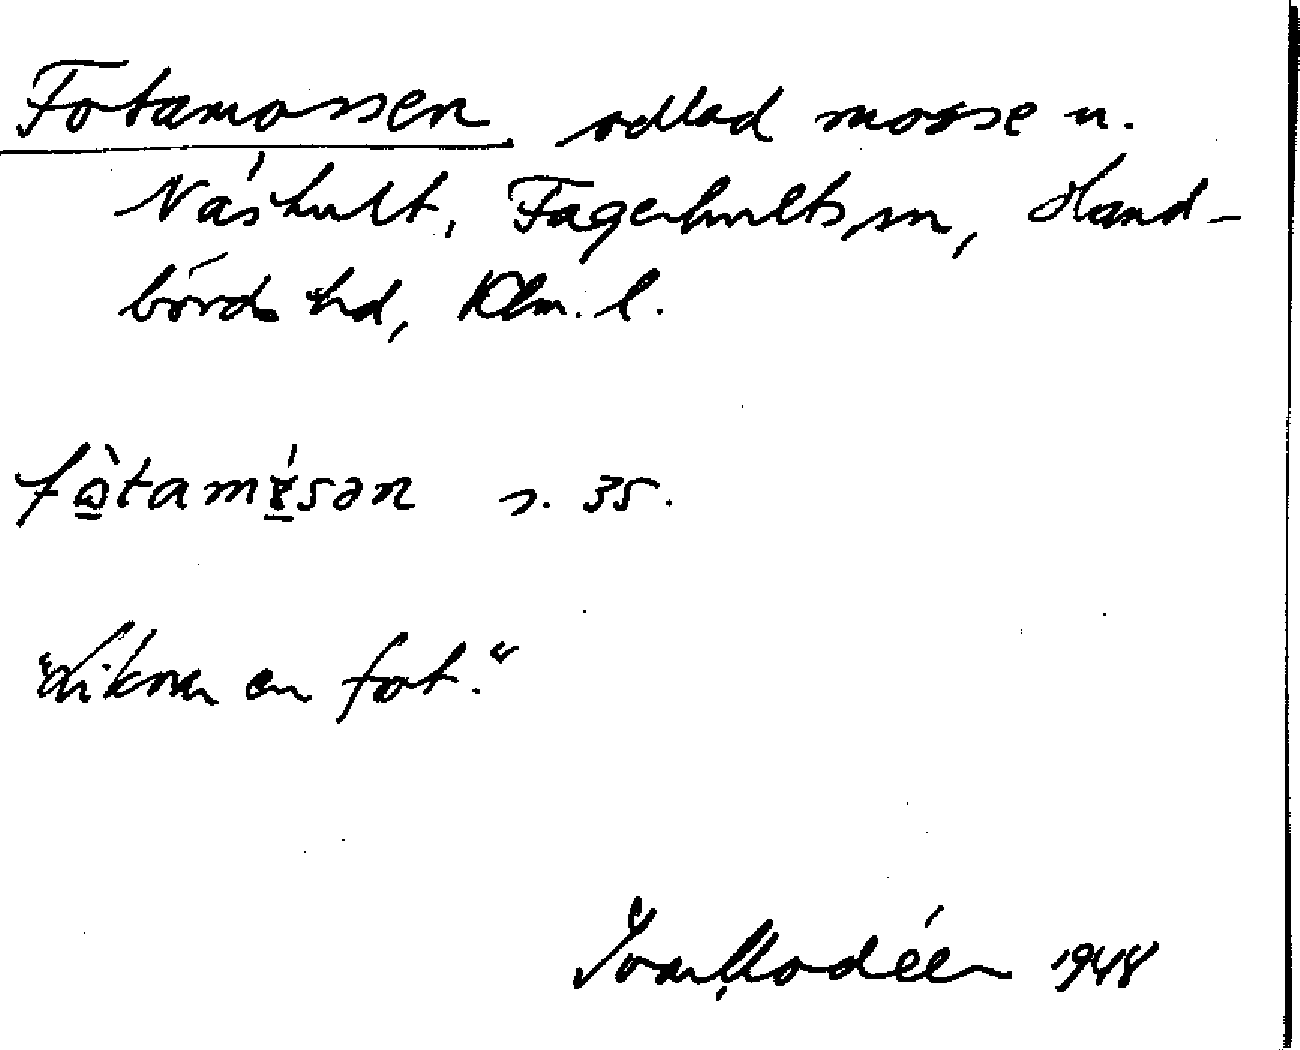 Fotamossen, odlad mosse u.
Näshult, Fagerhults sn, Hand-
börds hd, Klm. l.
fòtamɤ́sən s. 35.
"Liknar en fot."
Ivar Modéer 1948